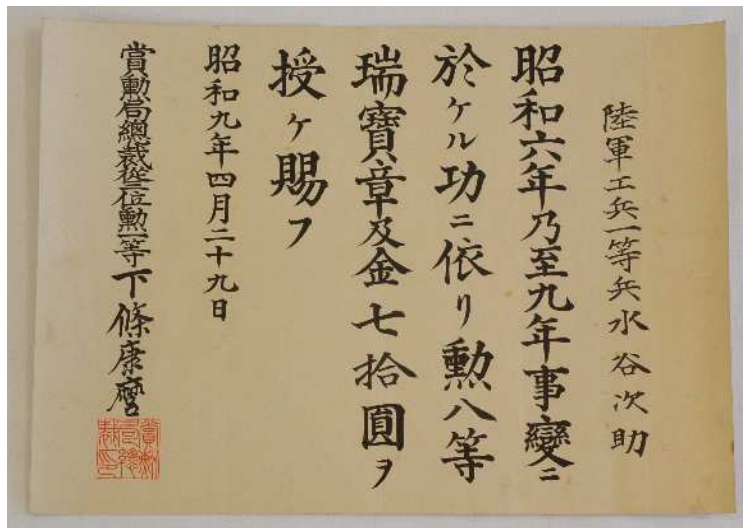 陸軍工兵一等兵水谷次助
昭和六年乃至九年事變ニ
於ケル功ニ依リ勲八等
瑞寶章及金七拾圓ヲ
授ケ賜フ
昭和九年四月二十九日
賞勲局總裁從三位勲一等下條康麿
賞勲局總裁印